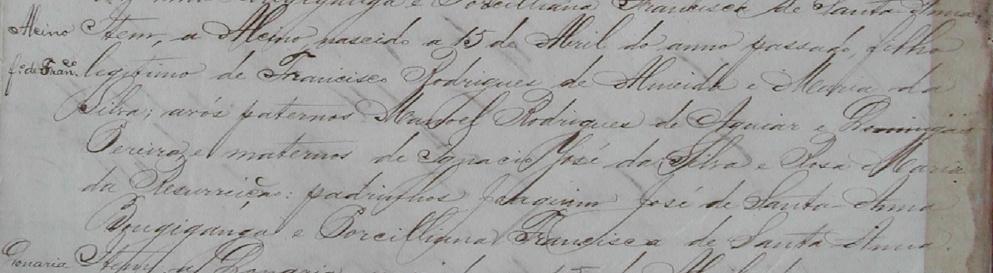 Francisca de Santa Anna.
Alcino Item, a Alcino nascido a 15 de Abril do anno passado, filho
fo. de Franco. legitimo de Francisco Rodrigues de Almeida e Maria da
Silva; avós paternos Manoel Rodrigues de Aguiar e Domingas
Pereira, e maternos de Ignacio José da Silva e Rosa Maria
da Resurreição: padrinhos Joaquim José de Santa Anna
Bugiganga e Porcilliana Francisca de Santa Anna.
Item, a